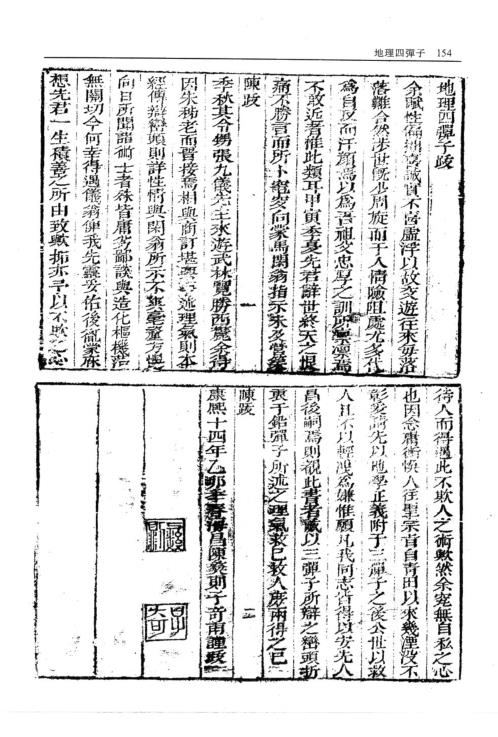 地理四彈子 154
地理四彈子跋
余賦性偏拙寫誠實不啻虛浮以故交遊往來毋落
落難合然涉世旣少周旋而于人情險阻處尤多代
爲自反而汗顏焉以爲吾祖父忠厚之訓所
不敢近者惟此類耳甲寅季夏先君辭世終天之恨
痛不勝言而所卜電穸向蒙馬閑翁指示來夕
陳跋
一
季秋其令甥張九儀先生來遊武林覽勝西
因朱秭老而冒接焉相與商訂堪輿
經傳辯巒頭則詳性情與閑翁所示不隻毫釐方
向日所聞諸術士者殊皆庸劣鄙談與造化樞機
無關切今何幸得遇儀翁使我先靈妥佑後胤蒙
想先君一生積善之所由致歟抑亦予以不欺之心
待人而得遇此不欺人之術歟然余寃無自私之心
也因念庸術悞人往聖宗旨自青田以來幾湮没不
彰爰請先以地學正義附于三彈子之後公世以救
人且不以輕洩爲嫌惟願凡我同志皆得以安先人
昌後嗣焉則觀此書者盍以三彈子所辯之巒頭折
衷于鉛彈子所述之理氣救已救人慶兩得之已
陳跋
二
康熙十四年乙卯季春海昌陳爰則子奇甫謹跋